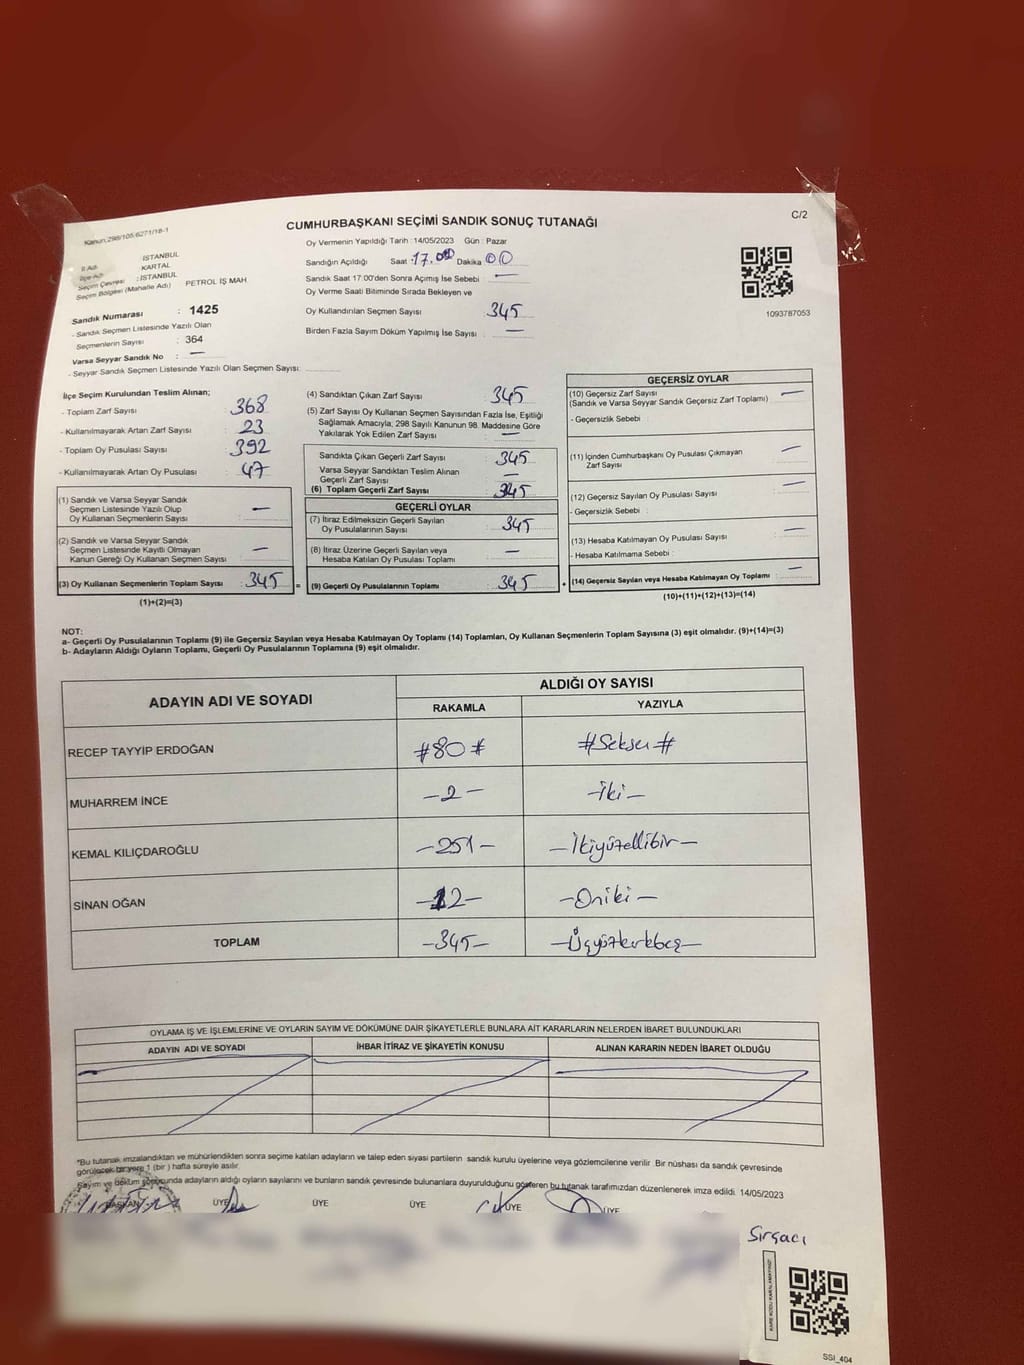 C/2
CUMHURBAŞKANI SEÇİMİ SANDIK SONUÇ TUTANAĞI
Kanun:298/105,6271/18-1
Oy Vermenin Yapıldığı Tarih :14/05/2023 Gün : Pazar
İl Adı : İSTANBUL
İlçe Adı : KARTAL
Seçim Çevresi : İSTANBUL
Seçim Bölgesi (Mahalle Adı) PETROL İŞ MAH
Sandığın Açıldığı Saat :17.00 Dakika 00
Sandık Saat 17:00'den Sonra Açımış İse Sebebi : —
Oy Verme Saati Bitiminde Sırada Bekleyen ve
Oy Kullandırılan Seçmen Sayısı 345
Birden Fazla Sayım Döküm Yapılmış İse Sayısı : —
1093787053
Sandık Numarası : 1425
- Sandık Seçmen Listesinde Yazılı Olan
Seçmenlerin Sayısı : 364
Varsa Seyyar Sandık No : —
- Seyyar Sandık Seçmen Listesinde Yazılı Olan Seçmen Sayısı:
İlçe Seçim Kurulundan Teslim Alınan;
- Toplam Zarf Sayısı 368
- Kullanılmayarak Artan Zarf Sayısı 23
- Toplam Oy Pusulası Sayısı 392
- Kullanılmayarak Artan Oy Pusulası 47
(1) Sandık ve Varsa Seyyar Sandık
Seçmen Listesinde Yazılı Olup
Oy Kullanan Seçmenlerin Sayısı —
(2) Sandık ve Varsa Seyyar Sandık
Seçmen Listesinde Kayıtlı Olmayan
Kanun Gereği Oy Kullanan Seçmen Sayısı : —
(3) Oy Kullanan Seçmenlerin Toplam Sayısı 345
(1)+(2)=(3)
(4) Sandıktan Çıkan Zarf Sayısı 345
(5) Zarf Sayısı Oy Kullanan Seçmen Sayısından Fazla İse, Eşitliği
Sağlamak Amacıyla; 298 Sayılı Kanunun 98. Maddesine Göre
Yakılarak Yok Edilen Zarf Sayısı : —
Sandıkta Çıkan Geçerli Zarf Sayısı 345
Varsa Seyyar Sandıktan Teslim Alınan
Geçerli Zarf Sayısı —
(6) Toplam Geçerli Zarf Sayısı 345
GEÇERLİ OYLAR
(7) İtiraz Edilmeksizin Geçerli Sayılan
Oy Pusulalarının Sayısı 345
(8) İtiraz Üzerine Geçerli Sayılan veya
Hesaba Katılan Oy Pusulası Toplamı —
(9) Geçerli Oy Pusulalarının Toplamı 345
GEÇERSİZ OYLAR
(10) Geçersiz Zarf Sayısı
(Sandık ve Varsa Seyyar Sandık Geçersiz Zarf Toplamı) —
- Geçersizlik Sebebi :
(11) İçinden Cumhurbaşkanı Oy Pusulası Çıkmayan
Zarf Sayısı —
(12) Geçersiz Sayılan Oy Pusulası Sayısı —
- Geçersizlik Sebebi :
(13) Hesaba Katılmayan Oy Pusulası Sayısı —
- Hesaba Katılmama Sebebi :
(14) Geçersiz Sayılan veya Hesaba Katılmayan Oy Toplamı : —
(10)+(11)+(12)+(13)=(14)
NOT:
a- Geçerli Oy Pusulalarının Toplamı (9) ile Geçersiz Sayılan veya Hesaba Katılmayan Oy Toplamı (14) Toplamları, Oy Kullanan Seçmenlerin Toplam Sayısına (3) eşit olmalıdır. (9)+(14)=(3)
b- Adayların Aldığı Oyların Toplamı, Geçerli Oy Pusulalarının Toplamına (9) eşit olmalıdır.
ADAYIN ADI VE SOYADI ALDIĞI OY SAYISI
RAKAMLA YAZIYLA
RECEP TAYYİP ERDOĞAN #80# #Seksen#
MUHARREM İNCE -2- -İki-
KEMAL KILIÇDAROĞLU -251- -İkiyüzellibir-
SİNAN OĞAN -12- -Oniki-
TOPLAM -345- -Üçyüzkırkbeş-
OYLAMA İŞ VE İŞLEMLERİNE VE OYLARIN SAYIM VE DÖKÜMÜNE DAİR ŞİKAYETLERLE BUNLARA AİT KARARLARIN NELERDEN İBARET BULUNDUKLARI
ADAYIN ADI VE SOYADI İHBAR İTİRAZ VE ŞİKAYETİN KONUSU ALINAN KARARIN NEDEN İBARET OLDUĞU
*Bu tutanak imzalandıktan ve mühürlendikten sonra seçime katılan adayların ve talep eden siyasi partilerin sandık kurulu üyelerine veya gözlemcilerine verilir. Bir nüshası da sandık çevresinde
görülecek bir yere 1 (bir) hafta süreyle asılır.
Sayım ve döküm sonucunda adayların aldığı oyların sayılarını ve bunların sandık çevresinde bulunanlara duyurulduğunu gösteren bu tutanak tarafımızdan düzenlenerek imza edildi. 14/05/2023
BAŞKAN ÜYE ÜYE ÜYE ÜYE ÜYE
Sırgacı
SSİ_404